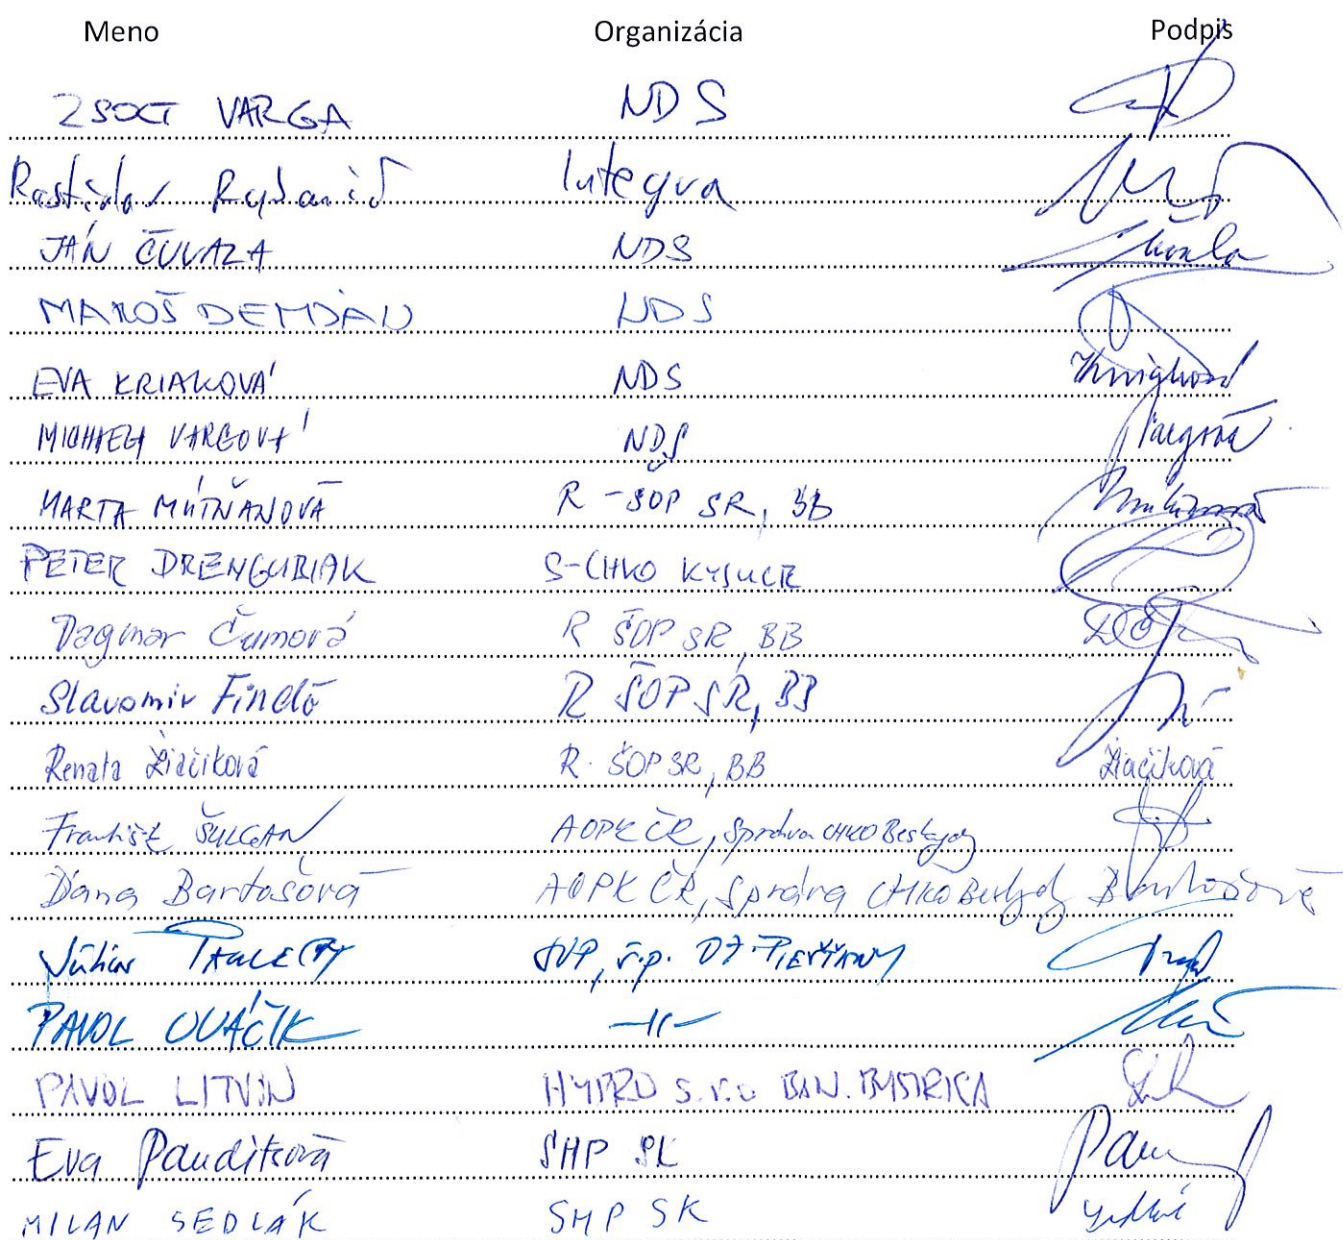 Meno Organizácia Podpis
ZSOLT VARGA NDS
Rastislav Rybanič Integra
JÁN ČUVALA NDS Čuvala
MAROŠ DEMJAN NDS
EVA KRIAKOVÁ NDS
MICHAELA VARGOVÁ NDS Vargová
MARTA MÚTŇANOVÁ R - ŠOP SR, BB
PETER DRENGUBIAK S-CHKO KYSUCE
Dagmar Čumová R ŠOP SR, BB
Slavomír Finďo R ŠOP SR, BB
Renata Žiačiková R ŠOP SR, BB Žiačiková
František ŠULGAN AOPK ČR, Správa CHKO Beskydy
Dana Bartošová AOPK ČR, Správa CHKO Beskydy Bartošová
SVP, š.p. OZ PIEŠŤANY
PAVOL -11-
PAVOL LITVIN HYPRO s.r.o BAN. BYSTRICA
Eva Pauditšová SHP SK
MILAN SEDLÁK SHP SK Sedlák